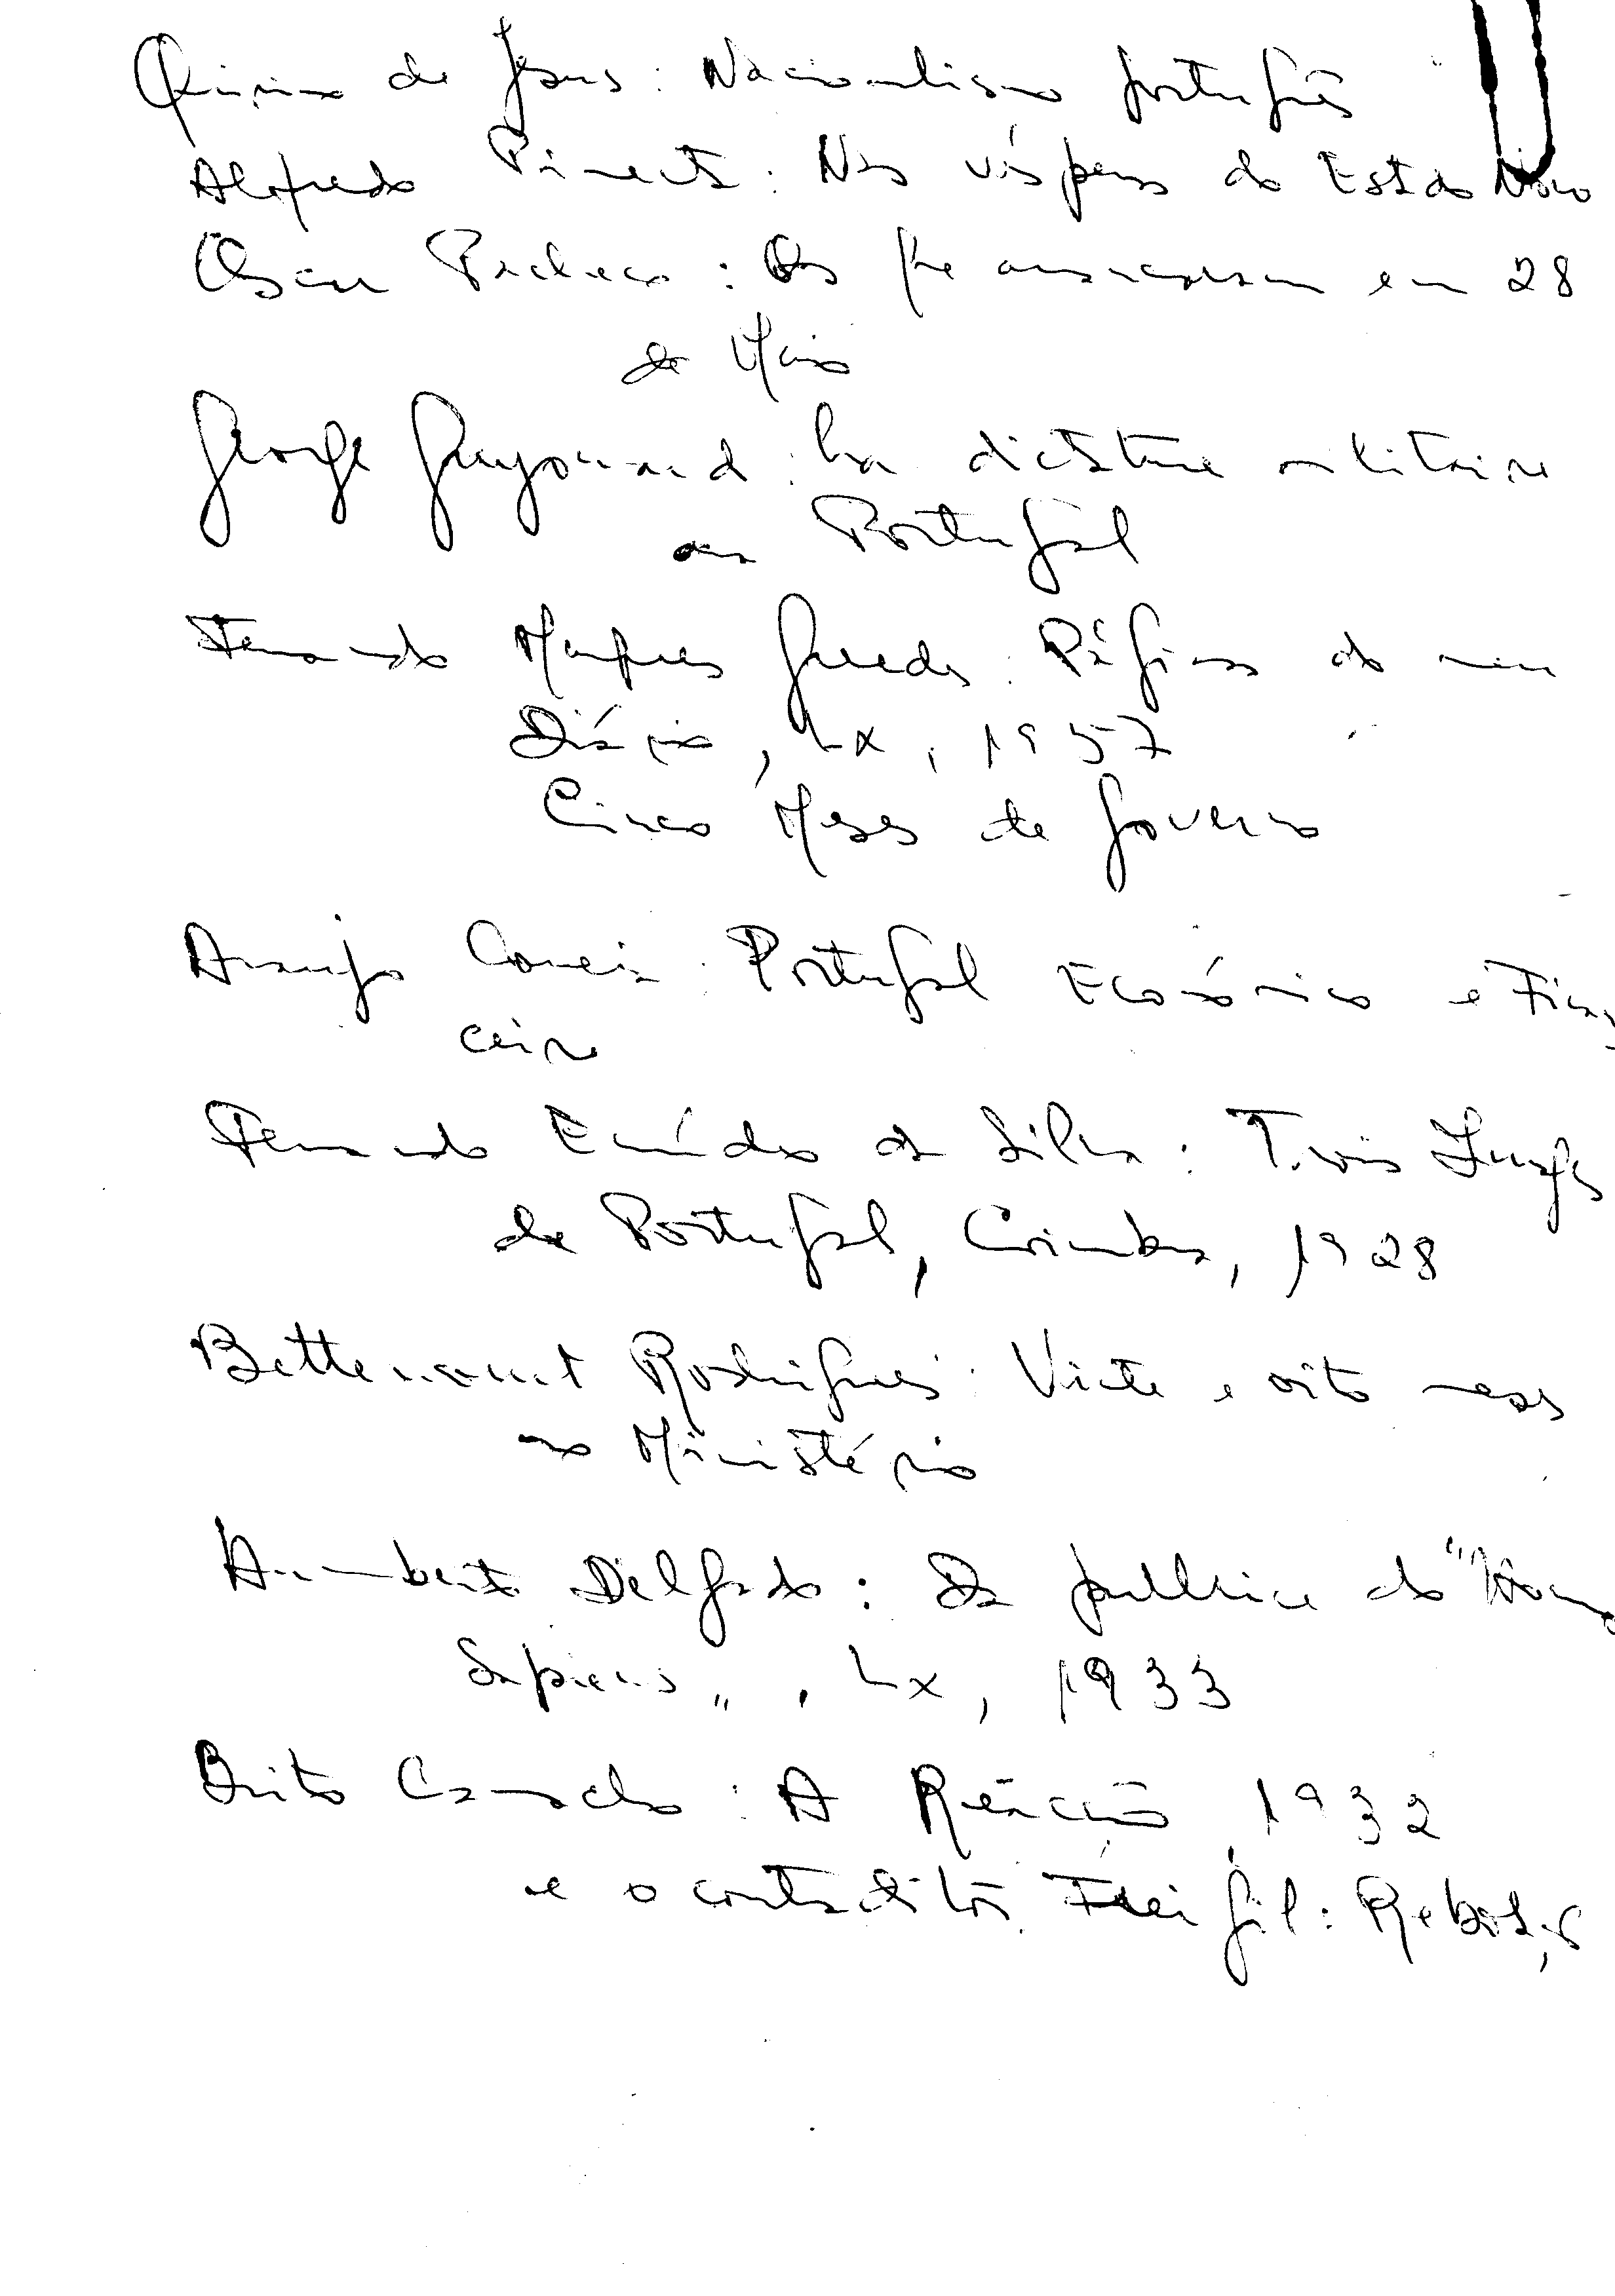 Quirino de Jesus: Nacionalismo português
Alfredo Pimenta: Nas vésperas do Estado Novo
Oscar Pacheco: Os que arrancaram em 28
de Maio
George Guyomard: La dictature militaire
au Portugal
Fernando Marques Guedes: Páginas do meu
Diário, Lx, 1957
Cinco Meses de Governo
Araújo Correia: Portugal Económico e Finan
ceiro
Fernando Emídio da Silva: Trois
de Portugal, Coimbra, 1928
Bettencourt Rodrigues: Vinte e oito meses
no Ministério
Humberto Delgado: Da pulhice do "Homo
Sapiens", Lx, 1933
Brito Camacho: A Reacção, 1932
e o contraditor Frei Gil: